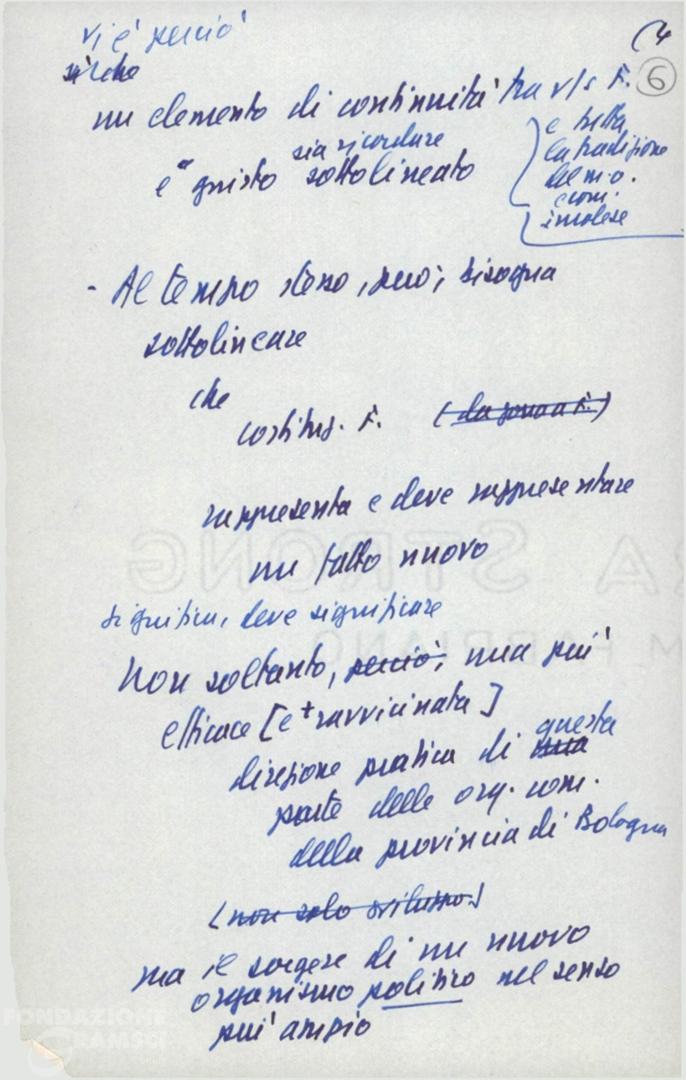 vi è perciò
sicchè
un elemento di continuità tra v/s F.
e tutta
la tradizione
del m.o.
e com.
imolese
sia ricordare
è giusto sottolineato
- Al tempo stesso, però, bisogna
sottolineare
che
costituz. F. (
rappresenta e deve rappresentare
un fatto nuovo
significa, deve significare
Non soltanto, perciò, una più
efficace [e + ravvicinata]
questa
direzione pratica di una
parte delle org. com.
della provincia di Bologna
(non solo sviluppo)
ma il sorgere di un nuovo
organismo politico nel senso
più ampio
4
6
RA STRONG
M FABRIANO
FONDAZIONE
GRAMSCI